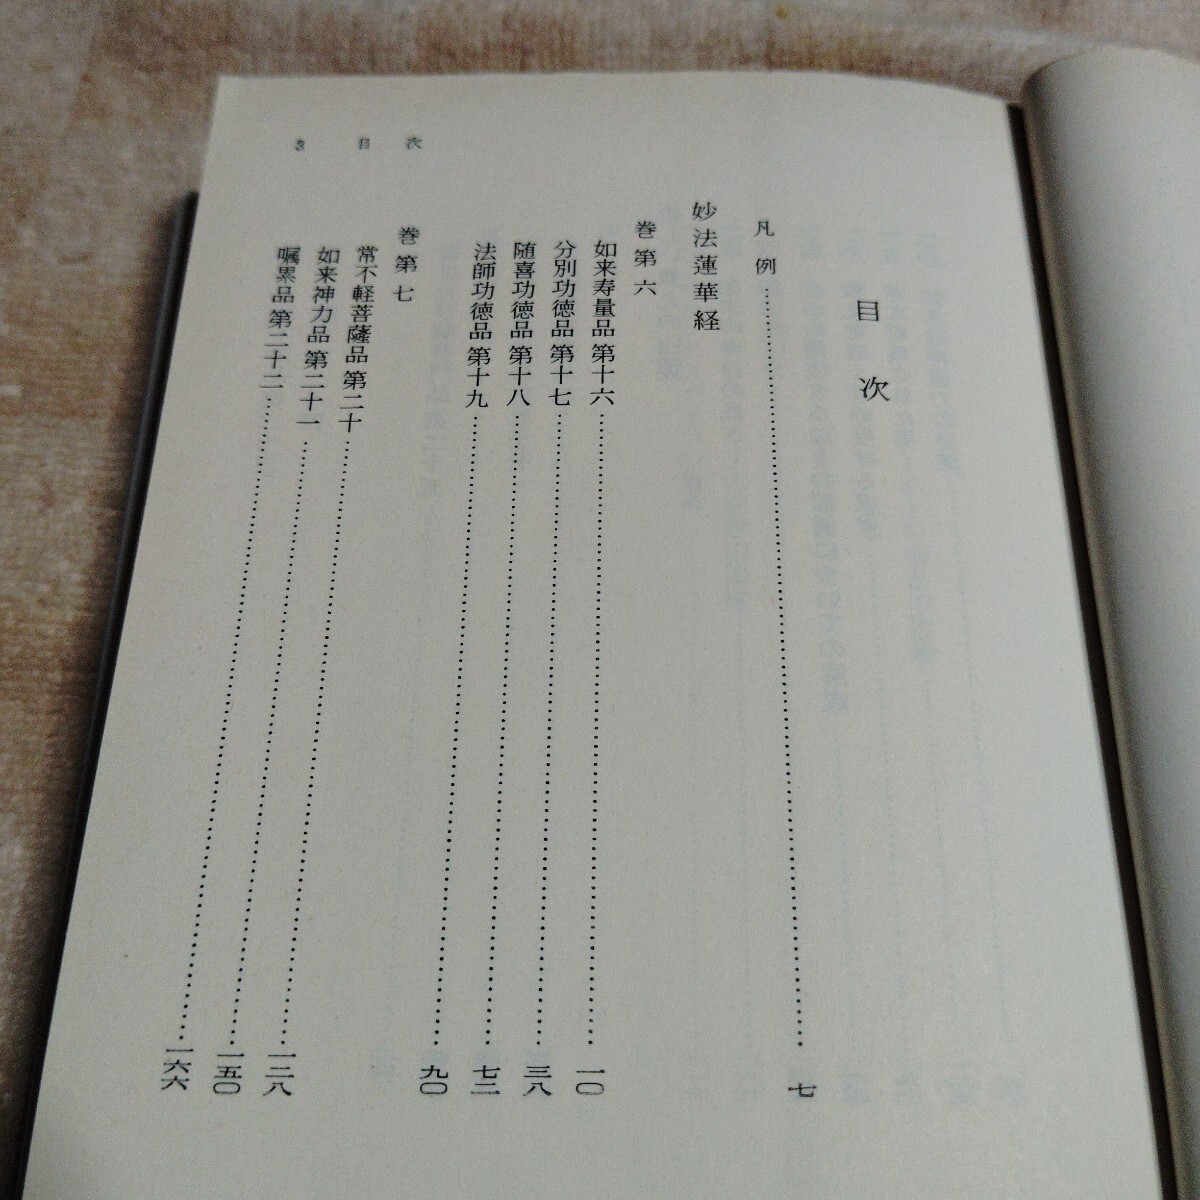 3 目次
目次
凡例……七
妙法蓮華経
巻第六
如来寿量品 第十六……一〇
分別功徳品 第十七……三八
随喜功徳品 第十八……七二
法師功徳品 第十九……九〇
巻第七
常不軽菩薩品 第二十……一二八
如来神力品 第二十一……一五〇
嘱累品 第二十二……一六六